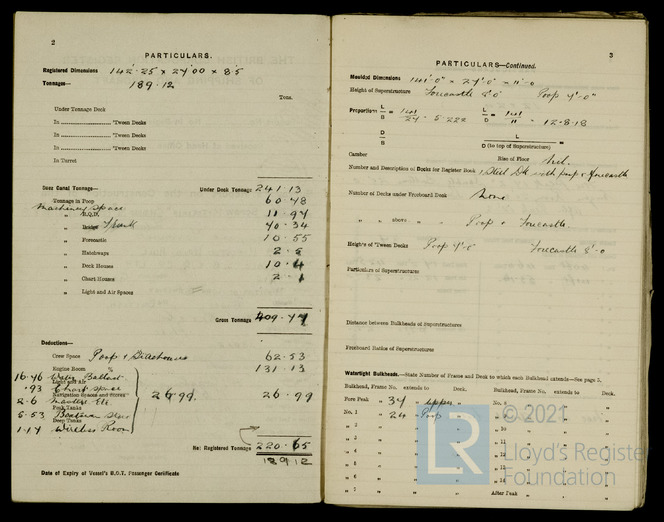 2
PARTICULARS.
Registered Dimensions 142·25 x 24·00 x 8·5
Tonnages— 189·12
Tons.
Under Tonnage Deck
In 'Tween Decks
In 'Tween Decks
In 'Tween Decks
In Turret
Suez Canal Tonnage— Under Deck Tonnage 241·13
Tonnage in Poop 60·48
Machinery Space
" R.Q.D. 11·94
" Bridge Trunk 40·34
" Forecastle 10·55
" Hatchways
" Deck Houses 10·4
" Chart Houses
" Light and Air Spaces
Gross Tonnage 409·77
Deductions—
Crew Space Poop + Deckhouses 62·53
Engine Room % 131·13
16·46 Water Ballast
Light and Air
·93 Chart Space
Navigation Spaces and Stores 26·99 26·99
2·6 Masters Etc
Peak Tanks
5·53 Boatswain Stores
Deep Tanks
1·14 Wireless Room
Net Registered Tonnage 220·65
189·12
Date of Expiry of Vessel's B.O.T. Passenger Certificate
3
PARTICULARS—Continued.
Moulded Dimensions 141'-0" x 24'-0" x 11'-0
Height of Superstructure Forecastle 8'0" Poop 4'-0"
Proportions L/B = 141/24 = 5·222 L/D = 141/11 = 12·818
D/B L/D (to top of Superstructure) =
Camber Rise of Floor Nil.
Number and Description of Decks for Register Book 1 Steel Dk with poop & forecastle
Number of Decks under Freeboard Deck None
" " above " " Poop & Forecastle.
Heights of 'Tween Decks Poop 4'-0" Forecastle 8'-0
Particulars of Superstructures
Distance between Bulkheads of Superstructures
Freeboard Ratios of Superstructures
Watertight Bulkheads.—State Number of Frame and Deck to which each Bulkhead extends—See page 5.
Bulkhead, Frame No. extends to Deck. Bulkhead, Frame No. extends to Deck.
Fore Peak " 34 " upper " No. 8 " "
No. 1 " 24 " Poop
" 2 " "
" 3 " "
" 4 " "
" 5 " "
" 6 " "
" 7 " " After Peak " "
LR
© 2021
Lloyd's Register
Foundation